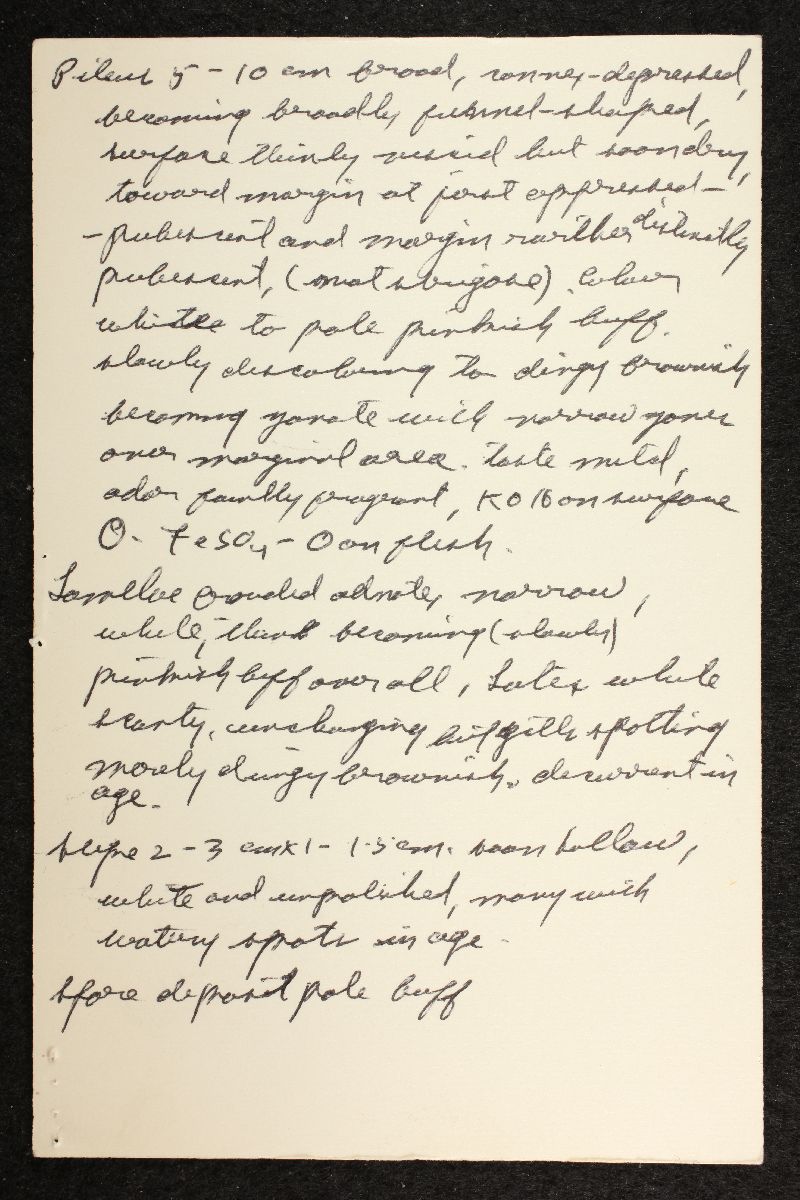 Pileus 5 - 10 cm broad, convex-depressed,
becoming broadly funnel-shaped,
surface thinly viscid but soon dry,
toward margin at first appressed-
-pubescent and margin rather distinctly
pubescent, (not strigose). Color
white to pale pinkish buff.
slowly discoloring to dingy brownish
becoming zonate with narrow zones
over marginal area. taste mild,
odor faintly fragrant, KOH on surface
O- FeSO4 - O on flesh.
Lamellae crowded adnate, narrow,
white, then becoming (slowly)
pinkish buff over all, Latex white
scanty, unchanging but gills spotting
dingy brownish. decurrent in
age.
stipe 2 - 3 cm x 1 - 1.5 cm. soon hollow,
white and unpolished, many with
watery spots in age.
spore deposit pale buff